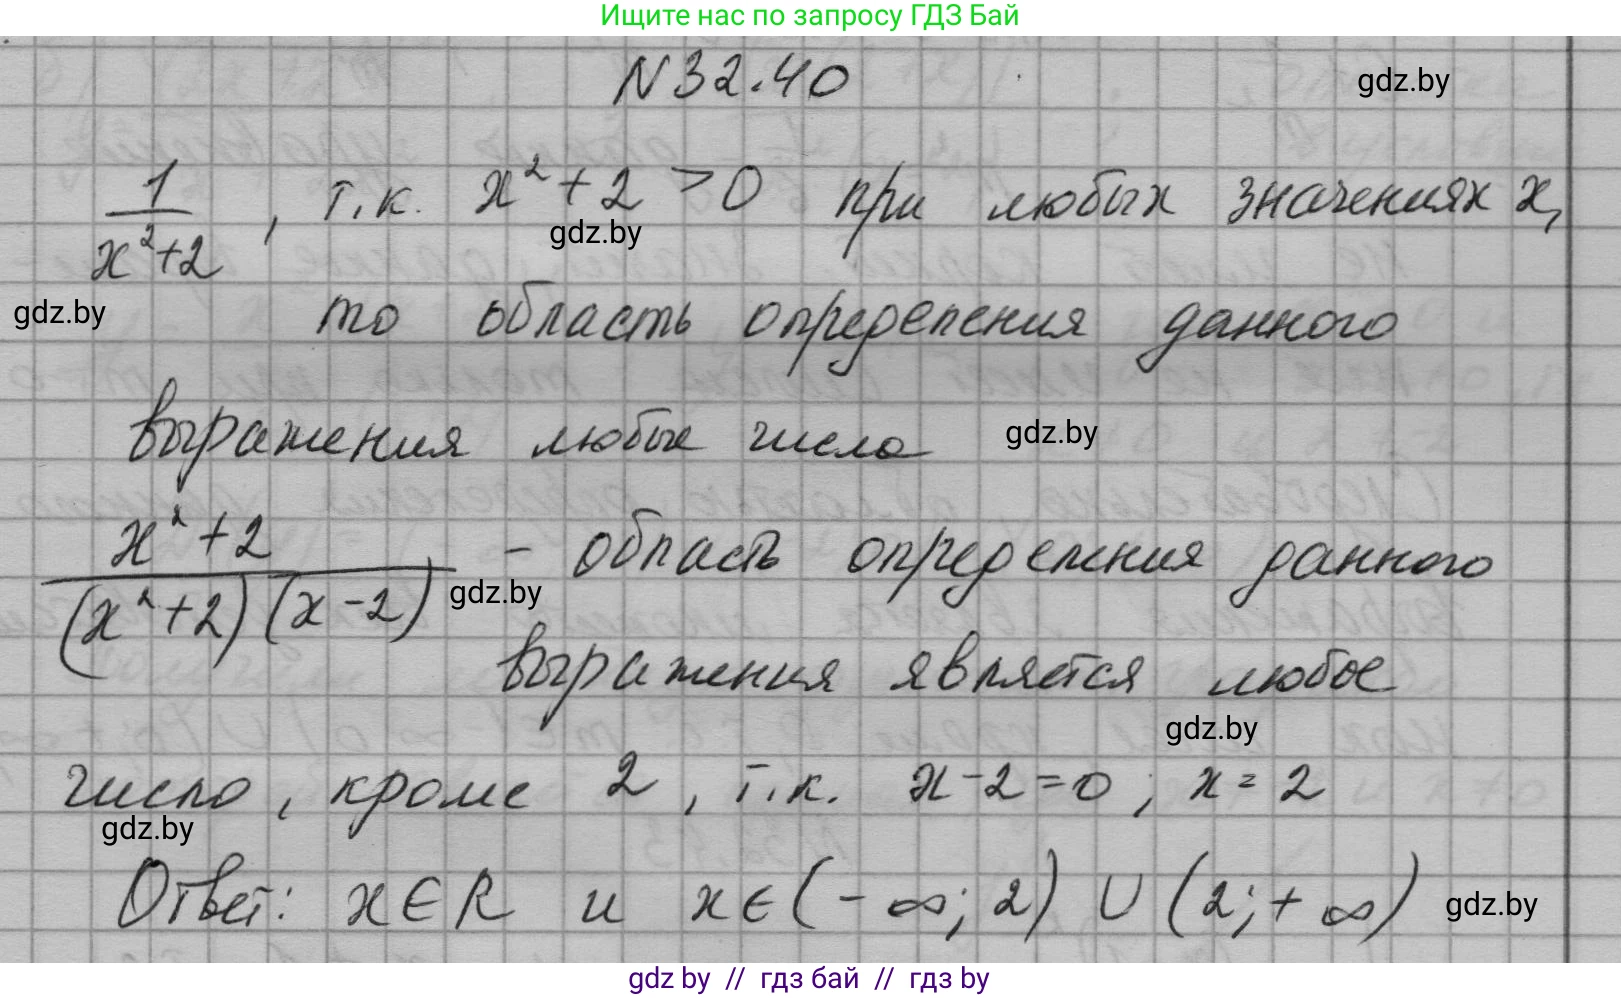 Ищите нас по запросу ГДЗ Бай
N 32.40
gdz.by
1/(x²+2), т.к. x²+2 > 0 при любых значениях x,
gdz.by
gdz.by
то область определения данного
выражения любые числа
gdz.by
(x²+2)/((x²+2)(x-2)) - область определения данного
gdz.by
выражения является любое
gdz.by
число, кроме 2, т.к. x-2=0; x=2
gdz.by
Ответ: x∈R и x∈(-∞; 2) ∪ (2; +∞)
gdz.by
gdz by // гдз бай // гдз by